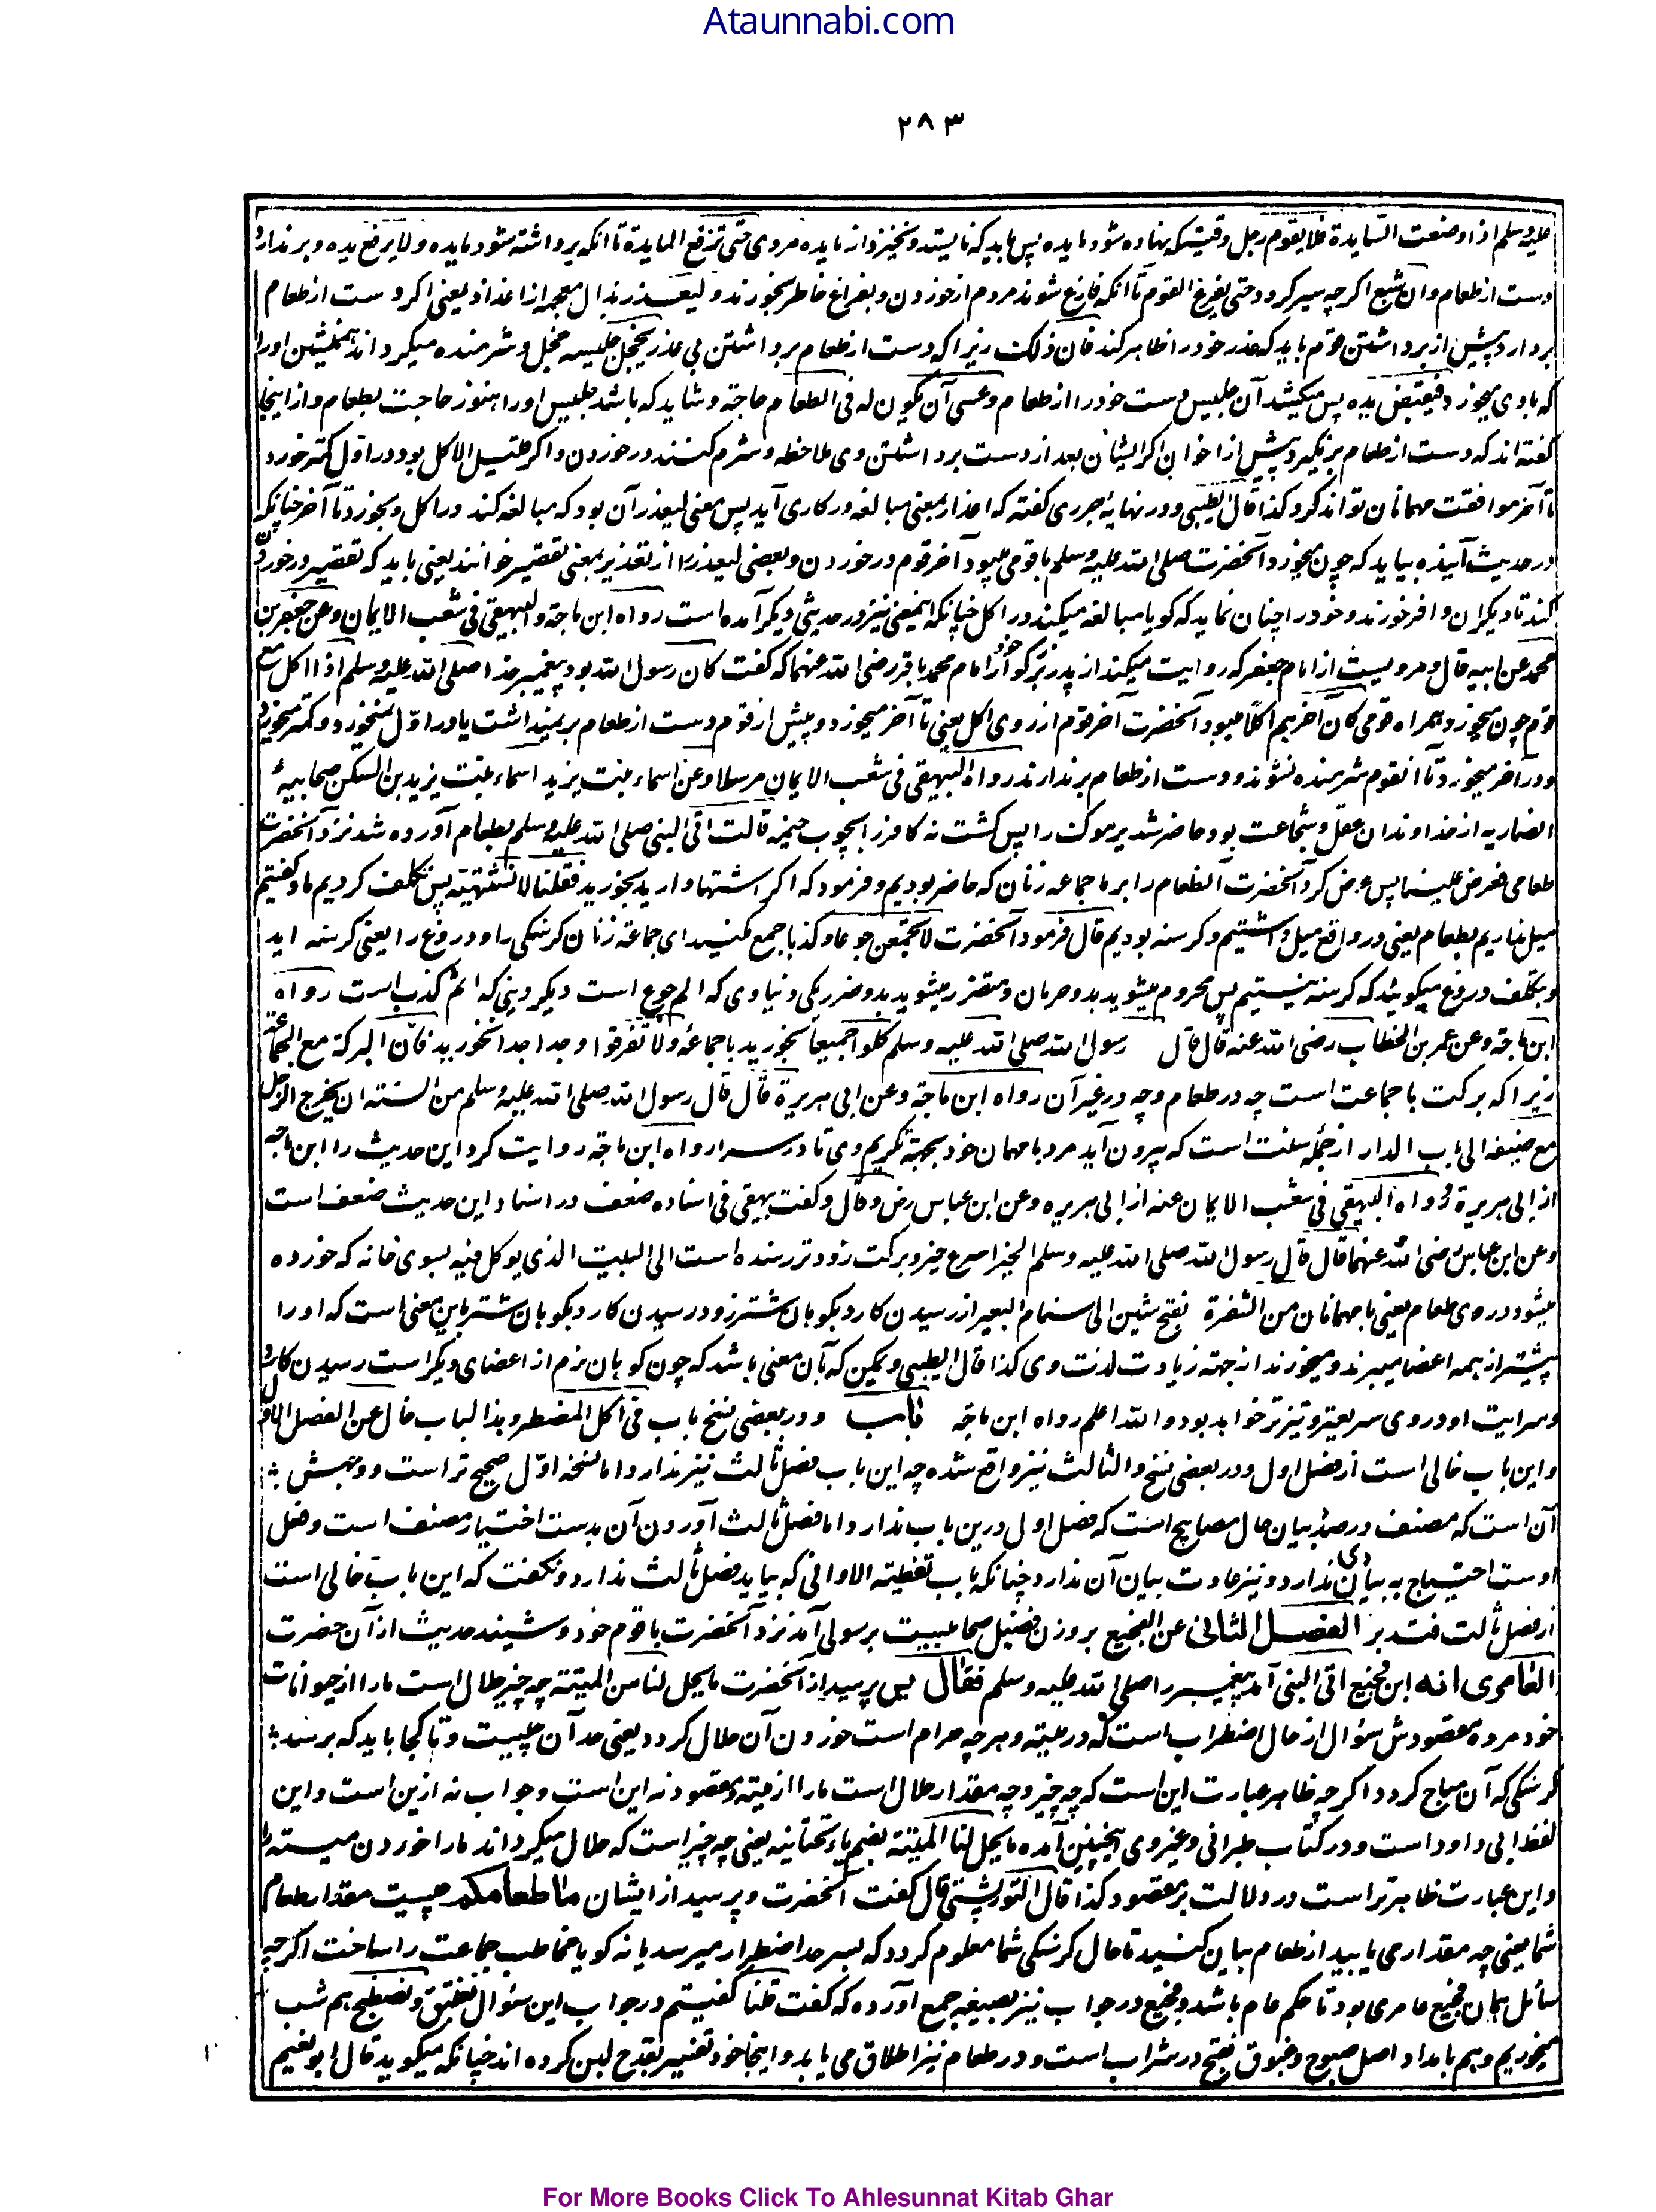 Ataunnabi.com
٢٨٣
علیه وسلم اذا وضعت المایدة فلا یقوم رجل وقتیکه نهاده شود مایده پس باید که نایستد و نخیزد از مایده مردی حتی ترفع المایدة تا آنکه برداشته شود مایده ولا یرفع یده و بر ندارد
دست از طعام وان شبع اگرچه سیر گردد حتی یفرغ القوم تا آنکه فارغ شوند مردم از خوردن و بفراغ خاطر بخورند ولیعذر بذال معجمه از اعذار یعنی اگر دست از طعام
بردارد پیش از برداشتن قوم باید که عذر خود را ظاهر کند فان ذلک زیرا که دست از طعام برداشتن بی عذر یخجل جلیسه خجل و شرمنده میگرداند همنشین او را
که با وی میخورد فیقبض یده پس میکشد آن جلیس دست خود را از طعام وعسی ان یکون له فی الطعام حاجة و شاید که باشد جلیس او را هنوز حاجت بطعام و از اینجا
گفته اند که دست از طعام برنگیرد پیش از اخوان اگر ایشان بعد از دست برداشتن وی ملاحظه و شرم کنند در خوردن و اگر قلیل الاکل بود در اول کمتر خورد
تا آخر موافقت مهمانان تواند کرد کذا قال الطیبی و در نهایه جزری گفته که اعذار بمعنی مبالغه در کاری آید پس معنی لیعذر آن بود که مبالغه کند در اکل و بخورد تا آخر چنانکه
در حدیث آینده بیاید که چون میخورد آنحضرت صلی الله علیه وسلم با قومی میبود آخر قوم در خوردن و بعضی لیعذر را از تعذیر بمعنی تقصیر خوانند یعنی باید که تقصیر در خوردن
کند تا دیگران وافر خورند و خود را چنان نماید که گویا مبالغه میکند در اکل چنانکه اینمعنی نیز در حدیثی دیگر آمده است رواه ابن ماجة والبیهقی فی شعب الایمان وعن جعفر بن
محمد عن ابیه قال و مرویست از امام جعفر که روایت میکند از پدر بزرگوار خود امام محمد باقر رضی الله عنهما که گفت کان رسول الله بود پیغمبر خدا صلی الله علیه وسلم اذا اکل مع
قوم چون میخورد همراه قومی کان آخرهم اکلا میبود آنحضرت آخر قوم از روی اکل یعنی تا آخر میخورد و پیش از قوم دست از طعام بر نمیداشت یا در اول نمیخورد و کمتر میخورد
و در آخر میخورد تا آنقوم شرمنده نشوند و دست از طعام بر ندارند رواه البیهقی فی شعب الایمان مرسلا وعن اسماء بنت یزید اسماء بنت یزید بن السکن صحابیه
انصاریه از خداوندان عقل و شجاعت بود حاضر شد یرموک را پس کشت نه کافر را بچوب خیمه قالت اتی النبی صلی الله علیه وسلم بطعام آورده شد نزد آنحضرت
طعامی فعرض علینا پس عرض کرد آنحضرت آنطعام را بر ما جماعه زنان که حاضر بودیم و فرمود که اگر اشتها دارید بخورید فقلنا لا نشتهیه پس تکلف کردیم ما و گفتیم
میل نداریم بطعام یعنی در واقع میل داشتیم و گرسنه بودیم قال فرمود آنحضرت لا تجتمعن جوعا وکذبا جمع نکنید ای جماعه زنان گرسنگی را و دروغ را یعنی گرسنه اید
و بتکلف دروغ میگوئید که گرسنه نیستیم پس محروم میشوید بدو حرمان و متضرر میشوید بدو ضرر یکی دنیاوی که الم جوع است دیگر دینی که اثم کذب است رواه
ابن ماجة وعن عمر بن الخطاب رضی الله عنه قال قال رسول الله صلی الله علیه وسلم کلوا جمیعا بخورید با جماعه ولا تفرقوا و جدا جدا نخورید فان البرکة مع الجماعة
زیرا که برکت با جماعت است چه در طعام و چه در غیر آن رواه ابن ماجة وعن ابی هریرة قال قال رسول الله صلی الله علیه وسلم من السنة ان یخرج الرجل
مع ضیفه الی باب الدار از جمله سنت است که بیرون آید مرد با مهمان خود بجهة تکریم وی تا در سرا رواه ابن ماجة روایت کرد این حدیث را ابن ماجه
از ابی هریرة ورواه البیهقی فی شعب الایمان عنه از ابی هریره وعن ابن عباس رض وقال و گفت بیهقی فی اسناده ضعف در اسناد این حدیث ضعف است
وعن ابن عباس رضی الله عنهما قال قال رسول الله صلی الله علیه وسلم الخیر اسرع خیر و برکت زودتر رسنده است الی البیت الذی یوکل فیه بسوی خانه که خورده
میشود دروی طعام یعنی با مهمانان من الشفرة بفتح شین الی سنام البعیر از رسیدن کارد بکوهان شتر زود رسیدن کارد بکوهان شتر باین معنی است که او را
پیشتر از همه اعضا میبرند و میخورند از جهة زیادت لذت وی کذا قال الطیبی و یمکن که بآن معنی باشد که چون کوهان نرم از اعضای دیگر است رسیدن کارد
و سرایت او در وی سریعتر و تیزتر خواهد بود والله اعلم رواه ابن ماجة باب و در بعضی نسخ باب فی اکل المضطر وهذا الباب خال عن الفصل الاول
و این باب خالی است از فصل اول و در بعضی نسخ والثالث نیز واقع شده چه این باب فصل ثالث نیز ندارد و اما نسخه اول صحیح تر است و وجهش
آن است که مصنف در صدد بیان حال مصابیح است که فصل اول درین باب ندارد و اما فصل ثالث آوردن آن بدست اختیار مصنف است و فعل
اوست احتیاج به بیان ندارد و نیز عادت بیان آن ندارد چنانکه باب تغطیة الاوانی که بیاید فصل ثالث ندارد و نگفت که این باب خالی است
از فصل ثالث فتدبر الفصل الثانی عن الفجیع بروزن فضیل صحابیست برسولی آمد نزد آنحضرت با قوم خود و شنید حدیث از آن حضرت
العامری انه ابن فجیع اتی النبی آمد پیغمبر را صلی الله علیه وسلم فقال پس پرسید از آنحضرت ما یحل لنا من المیتة چه چیز حلال است ما را از حیوانات
خود مرده مقصودش سؤال از حال اضطراب است که در میته و هر چه حرام است خوردن آن حلال گردد یعنی حد آن چیست و تا کجا باید که برسد
گرسنگی که آن مباح گردد اگرچه ظاهر عبارت این است که چه چیز و چه مقدار حلال است ما را از میته و مقصود نه این است و جواب نه ازین است و این
لفظ ابی داود است و در کتاب طبرانی و غیر وی همچنین آمده ما یحل لنا المیتة بضم یاء تحتانیه یعنی چه چیز است که حلال میگرداند ما را خوردن میته را
و این عبارت ظاهرتر است در دلالت بر مقصود کذا قال التورپشتی قال گفت آنحضرت و پرسید از ایشان ما طعامکم چیست مقدار طعام
شما یعنی چه مقدار می یابید از طعام بیان کنید تا حال گرسنگی شما معلوم گردد که بسر حد اضطرار میرسد یا نه گویا مخاطب جماعت را ساخت اگرچه
سائل همان فجیع عامری بود تا حکم عام باشد و فجیع در جواب نیز بصیغه جمع آورده که گفت قلنا گفتیم در جواب این سؤال نغتبق ونصطبح هم شب
میخوریم و هم بامداد اصل صبوح و غبوق بفتح در شراب است و در طعام نیز اطلاق می یابد و اینجا خود تفسیر بقدح لبن کرده اند چنانکه میگوید قال ابو نعیم
For More Books Click To Ahlesunnat Kitab Ghar